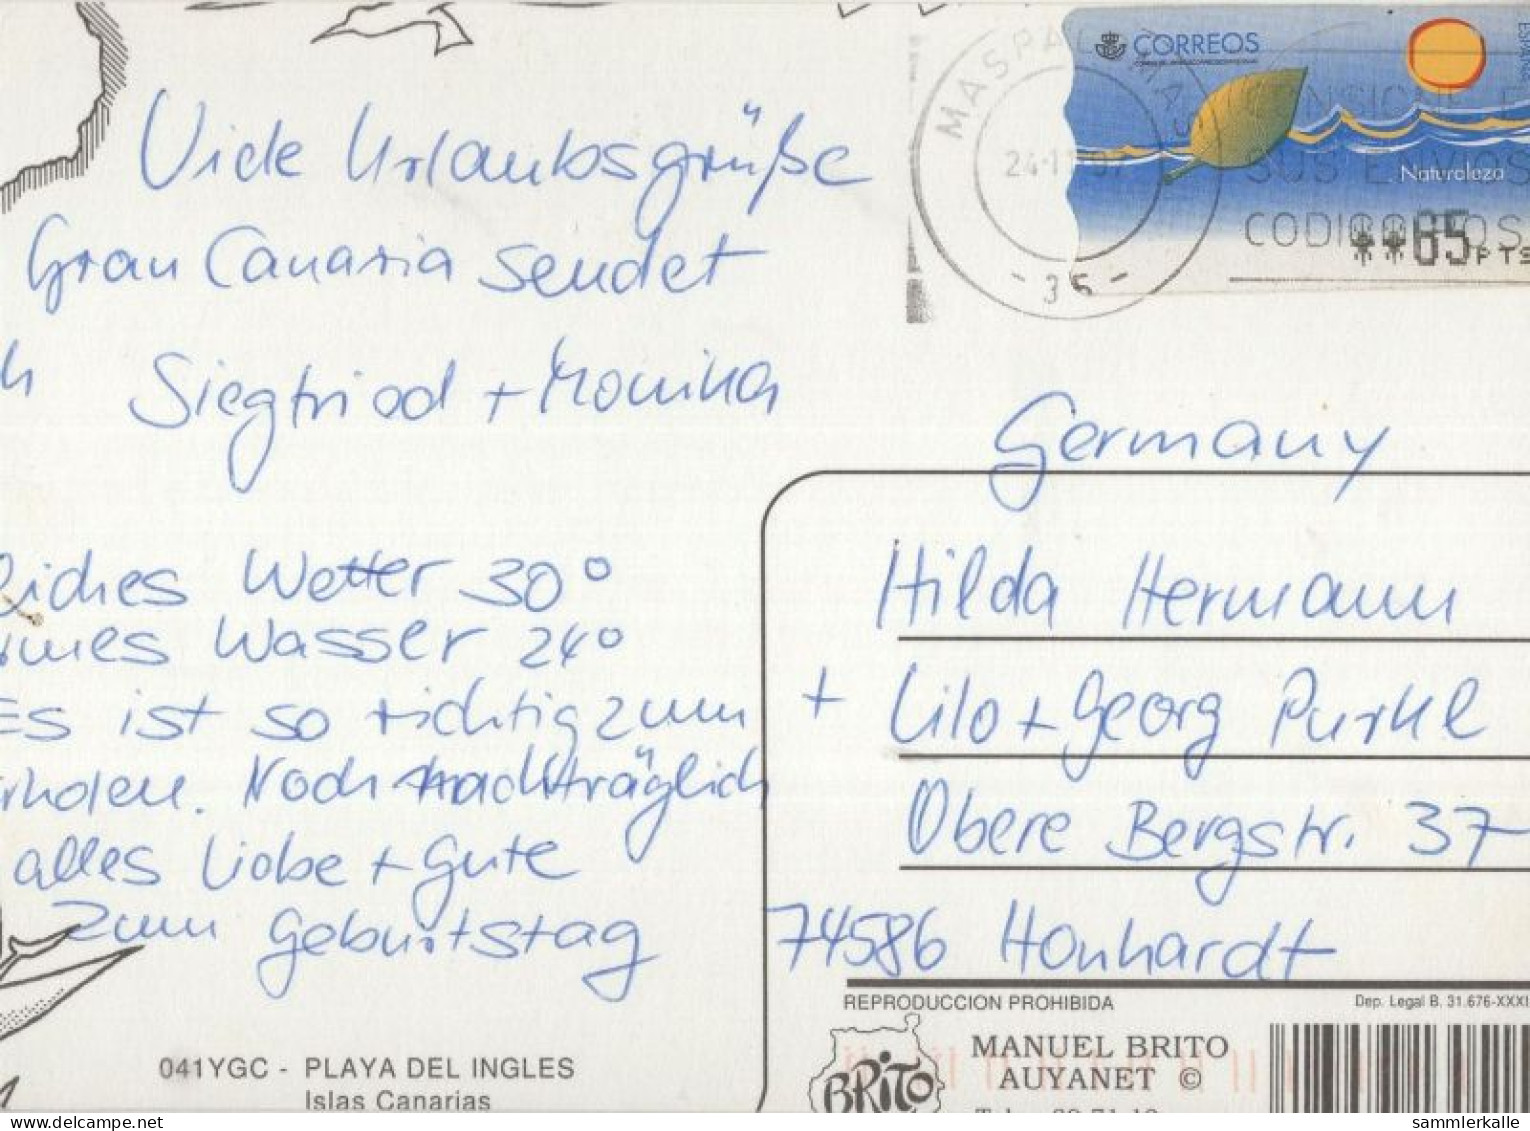 Viele Urlaubsgrüße
Gran Canaria sendet
Siegfried + Monika
liches Wetter 30°
rmes Wasser 24°
Es ist so richtig zum
rholen. Noch nachträglich
alles Liebe + Gute
zum Geburtstag
041YGC - PLAYA DEL INGLES
Islas Canarias
CORREOS
ESPAÑA
Naturaleza
**65PTS
MASPALOMAS
- 35 -
CONSIGNE E
SUS ENVIOS
CODIGO POS
Germany
Hilda Hermann
+ Lilo + Georg Purkl
Obere Bergstr. 37
74586 Honhardt
REPRODUCCION PROHIBIDA
Dep. Legal B. 31.676-XXXI
BRITO
MANUEL BRITO
AUYANET ©
delcampe.net
sammlerkalle